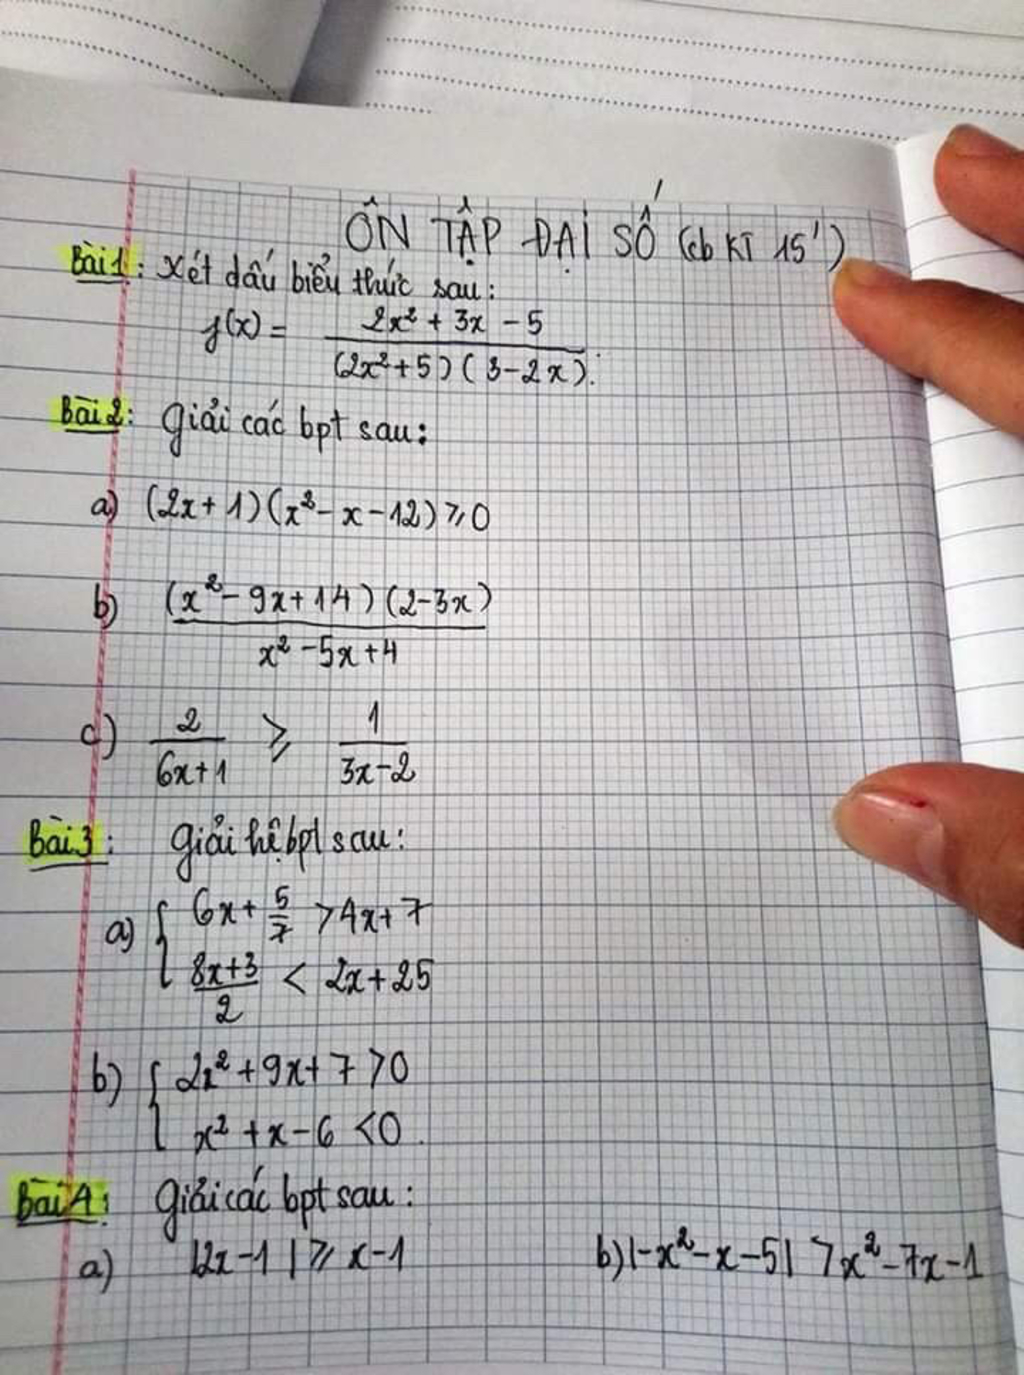 ÔN TẬP ĐẠI SỐ (cb KT 15')
Bài 1: Xét dấu biểu thức sau:
f(x) = (2x² + 3x - 5) / ((2x²+5)(3-2x)).
Bài 2: Giải các bpt sau:
a) (2x+1)(x²-x-12) ⩾ 0
b) (x²-9x+14)(2-3x) / (x²-5x+4)
c) 2/(6x+1) ⩾ 1/(3x-2)
Bài 3: Giải hệ bpt sau:
a) { 6x + 5/7 > 4x+7
(8x+3)/2 < 2x+25
b) { 2x² + 9x + 7 > 0
x² + x - 6 < 0.
Bài 4: Giải các bpt sau:
a) |2x-1| ⩾ x-1 b) |-x²-x-5| > x²-7x-1